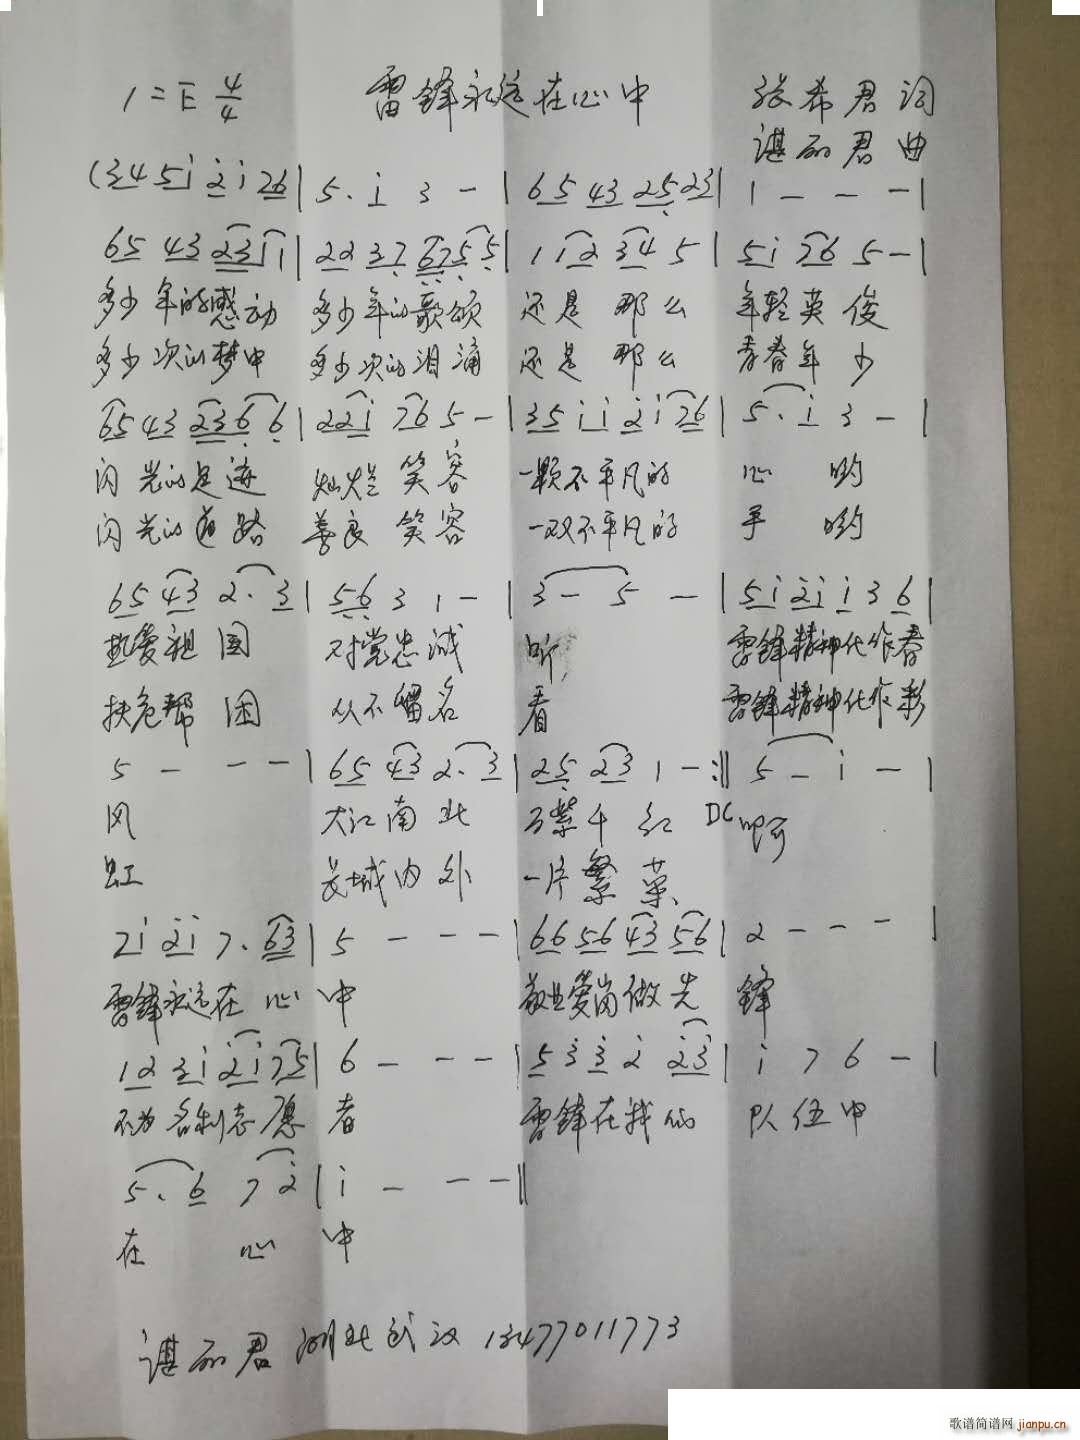 1=E 4/4 雷锋永远在心中 张希君词
谌丽君曲
(34 5i 2i 26 | 5. i 3 - | 65 43 25 23 | 1 - - - |
65 43 23 1 1 | 22 37 675 5 | 1 12 34 5 | 5i 76 5 - |
多少年的感动 多少年的歌颂 还是那么 年轻英俊
多少次的梦中 多少次的泪涌 还是那么 青春年少
65 43 236 6 | 22i 76 5 - | 35 ii 2i 76 | 5. i 3 - |
闪光的足迹 灿烂笑容 一颗不平凡的 心哟
闪光的道路 善良笑容 一双不平凡的 手哟
65 43 2. 3 | 56 3 1 - | 3 - 5 - | 5i 2i i 3 6 |
热爱祖国 对党忠诚 听 雷锋精神化作春
扶危帮困 从不留名 看 雷锋精神化作彩
5 - - - | 65 43 2. 3 | 25 23 1 - :|| 5 - i - |
风 大江南北 万紫千红 DC 啊
虹 长城内外 一片繁荣
7i 2i 7. 63 | 5 - - - | 66 56 43 56 | 2 - - - |
雷锋永远在心中 敬业爱岗做先锋
12 3i 2i 75 | 6 - - - | 5 3 3 2 23 | i 7 6 - |
不为名利志愿者 雷锋在我们队伍中
5. 6 7 2 | i - - - ||
在心中
谌丽君 湖北武汉 13477011773
歌谱简谱网 jianpu.cn